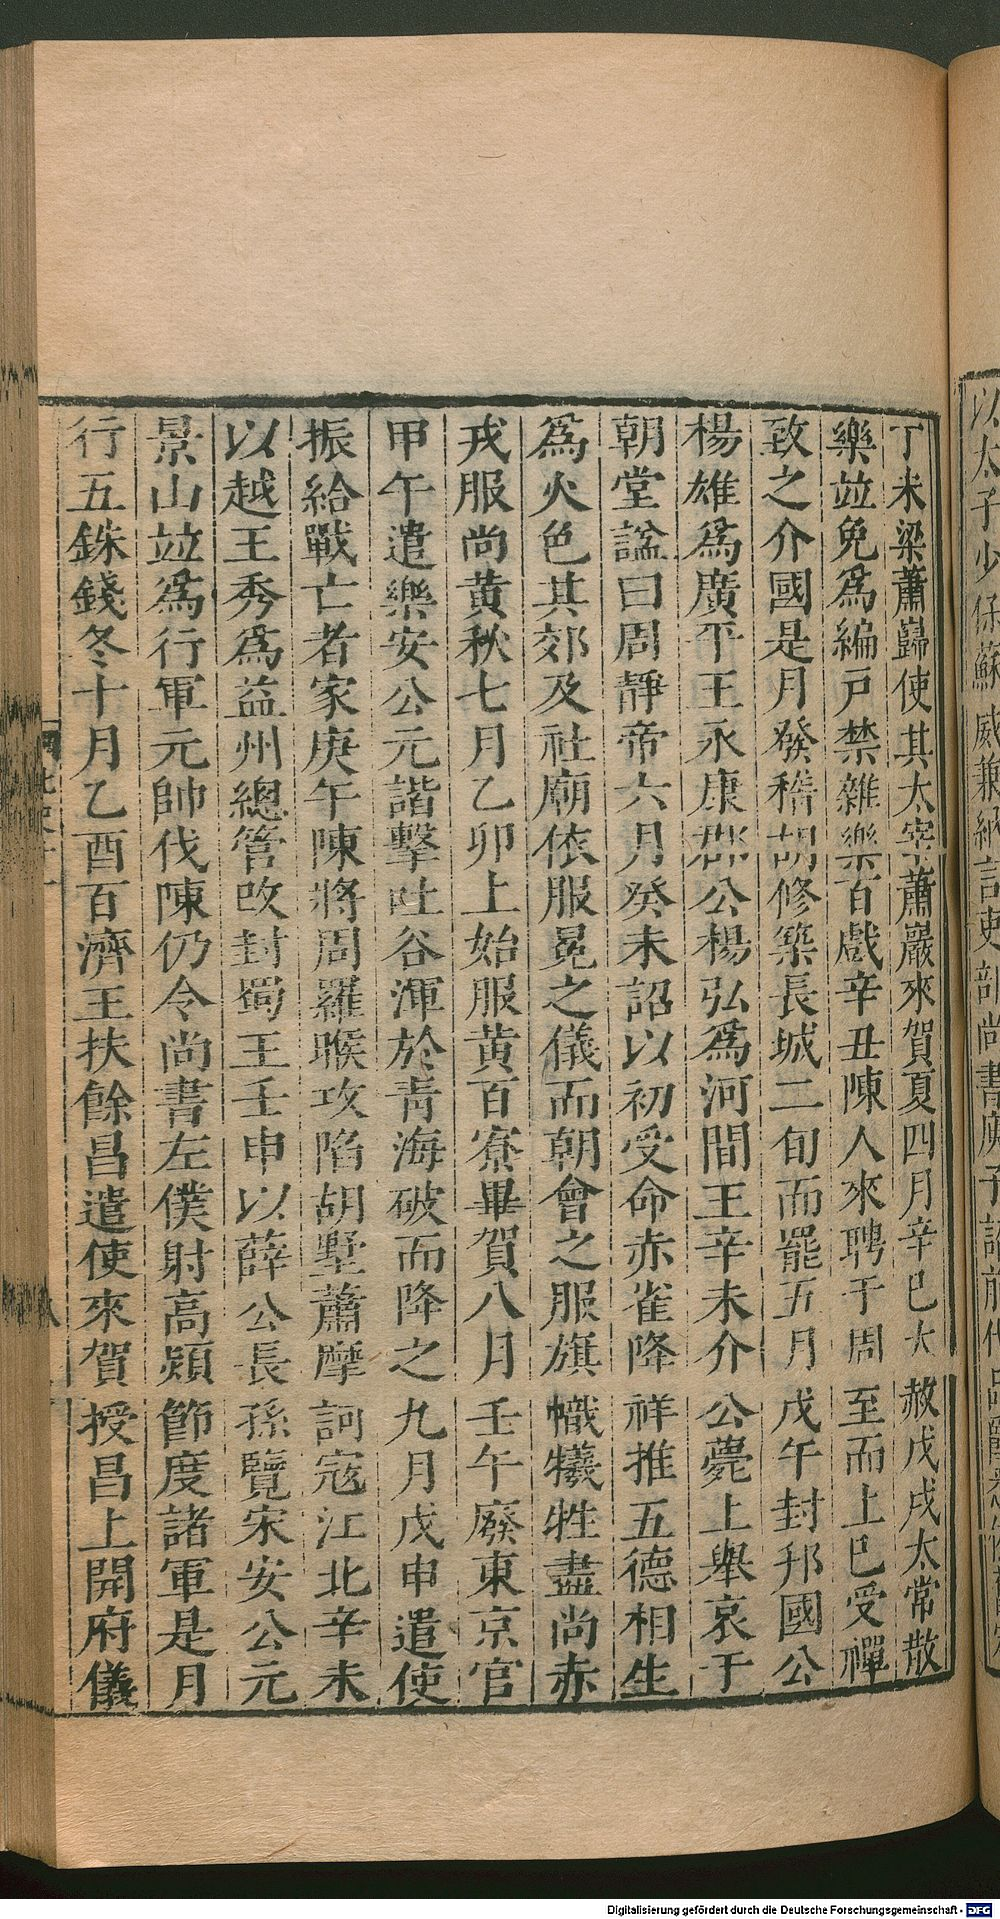 丁未梁蕭巋使其太宰蕭巖來賀夏四月辛巳大赦戊戌太常散
樂竝免爲編戸禁雜樂百戲辛丑陳人來聘于周至而上巳受禪
致之介國是月發稽胡修築長城二旬而罷五月戊午封邘國公
楊雄爲廣平王永康郡公楊弘爲河間王辛未介公薨上舉哀于
朝堂諡曰周靜帝六月癸未詔以初受命赤雀降祥推五德相生
爲火色其郊及社廟依服冕之儀而朝會之服旗幟犧牲盡尚赤
戎服尚黃秋七月乙卯上始服黃百寮畢賀八月壬午廢東京官
甲午遣樂安公元諧擊吐谷渾於青海破而降之九月戊申遣使
振給戰亡者家庚午陳將周羅㬋攻陷胡墅蕭摩訶寇江北辛未
以越王秀爲益州總管改封蜀王壬申以薛公長孫覽宋安公元
景山竝爲行軍元帥伐陳仍令尚書左僕射高熲節度諸軍是月
行五銖錢冬十月乙酉百濟王扶餘昌遣使來賀授昌上開府儀
Digitalisierung gefördert durch die Deutsche Forschungsgemeinschaft - DFG